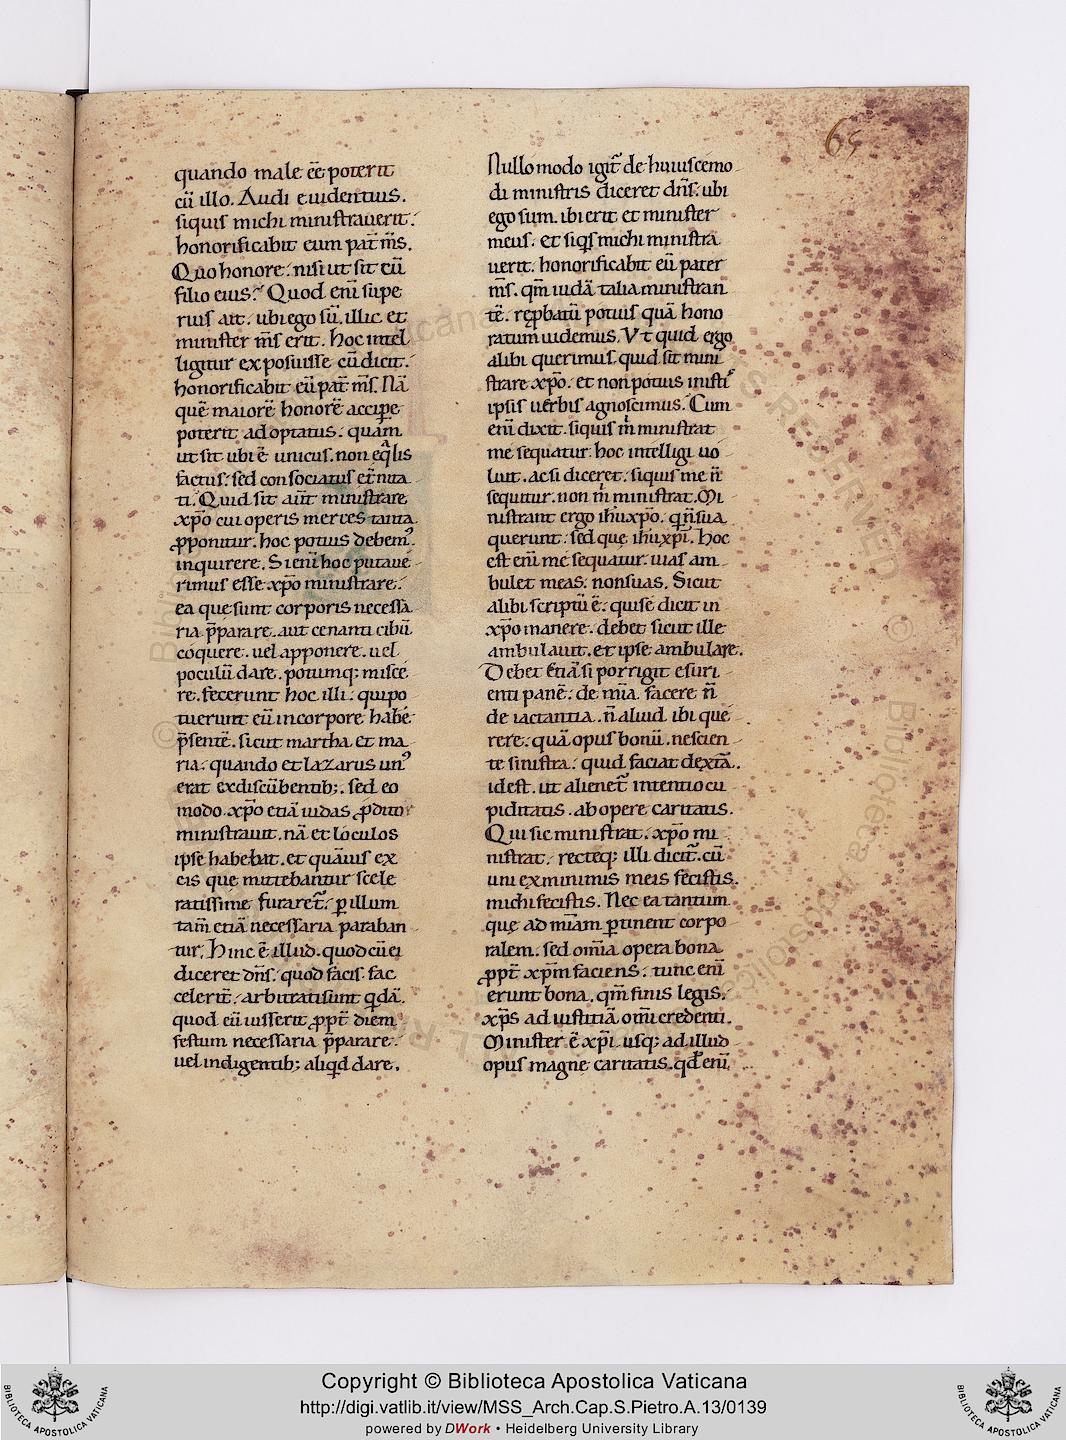 65
quando male eē poterit
cū illo. Audi euidentius.
siquis michi ministrauerit.
honorificabit eum pat̄ m̄s.
Quo honore. nisi ut sit cū
filio eius. Quod eni supe
rius ait. ubi ego sū. illic et
minister m̄s erit. hoc intel
ligitur exposuisse cū dicit.
honorificabit eū pat̄ m̄s. Nā
quē maiorē honorē accipe
poterit adoptatus. quam
ut sit ubi ē unicus. non eqͣlis
factus. sed consociatus et̄nita
ti. Quid sit aut̄ ministrare
xp̄o cui operis merces tanta
ꝓponitur. hoc potius debemꝰ
inquirere. Si eni hoc putaue
rimus esse xp̄o ministrare.
ea que sunt corporis necessa
ria p̄parare. aut cenanti cibū
coquere. uel apponere. uel
poculū dare. potumq; misce
re. fecerunt hoc illi. qui po
tuerunt eū in corpore habe
p̄sentē. sicut martha et ma
ria. quando et lazarus unꝰ
erat ex discūbentib;. sed eo
modo xp̄o etiā iudas ꝓditor
ministrauit. nā et loculos
ipse habebat. et quāuis ex
eis que mittebantur scele
ratissime furaret̄. ꝑ illum
tam̄ etiā necessaria paraban
tur. Hinc ē illud. quod cū ei
diceret dn̄s. quod facis. fac
celerit̄. arbitrati sunt qͥdā.
quod eū iusserit ꝓpt̄ diem
festum necessaria p̄parare.
uel indigentib; aliqͥd dare.
Nullo modo igit̄ de huiuscemo
di ministris diceret dn̄s. ubi
ego sum. ibi erit et minister
meus. et siqͥs michi ministra
uerit. honorificabit eū pater
m̄s. qm̄ iudā talia ministran
tē. reꝓbatū potius quā hono
ratum uidemus. Ut quid ergo
alibi querimus quid sit mini
strare xp̄o. et non potius in isti
ipsis uerbis agnoscimus. Cum
eni dixit. siquis m̄ ministrat
me sequatur. hoc intelligi uo
luit. ac si diceret. siquis me n̄
sequitur. non m̄ ministrat. Mi
nistrant ergo ih̄u xp̄o. qͥ n̄ sua
querunt. sed que ih̄u xp̄i. Hoc
est eni me sequatur. uias am
bulet meas. non suas. Sicut
alibi scriptū ē. qui se dicit in
xp̄o manere. debet sicut ille
ambulauit. et ipse ambulare.
Debet etiā si porrigit esuri
enti panē. de mīa facere n̄
de iactantia. n̄ aliud ibi que
rere. quā opus bonū. nescien
te sinistra. quid faciat dext̄a.
id est. ut alienet̄ intentio cu
piditatis. ab opere caritatis.
Qui sic ministrat. xp̄o mi
nistrat. recteq; illi dicit̄. cū
uni ex minimis meis fecistis.
michi fecistis. Nec ea tantum
que ad mīam ꝑtinent corpo
ralem. sed om̄ia opera bona
ꝓpt̄ xp̄m faciens. tunc eni
erunt bona. qm̄ finis legis.
xp̄s ad iustitiā om̄i credenti.
Minister ē xp̄i usq; ad illud
opus magne caritatis. qd̄ eni
Copyright © Biblioteca Apostolica Vaticana
http://digi.vatlib.it/view/MSS_Arch.Cap.S.Pietro.A.13/0139
powered by DWork • Heidelberg University Library
BIBLIOTECA APOSTOLICA VATICANA
BIBLIOTECA APOSTOLICA VATICANA